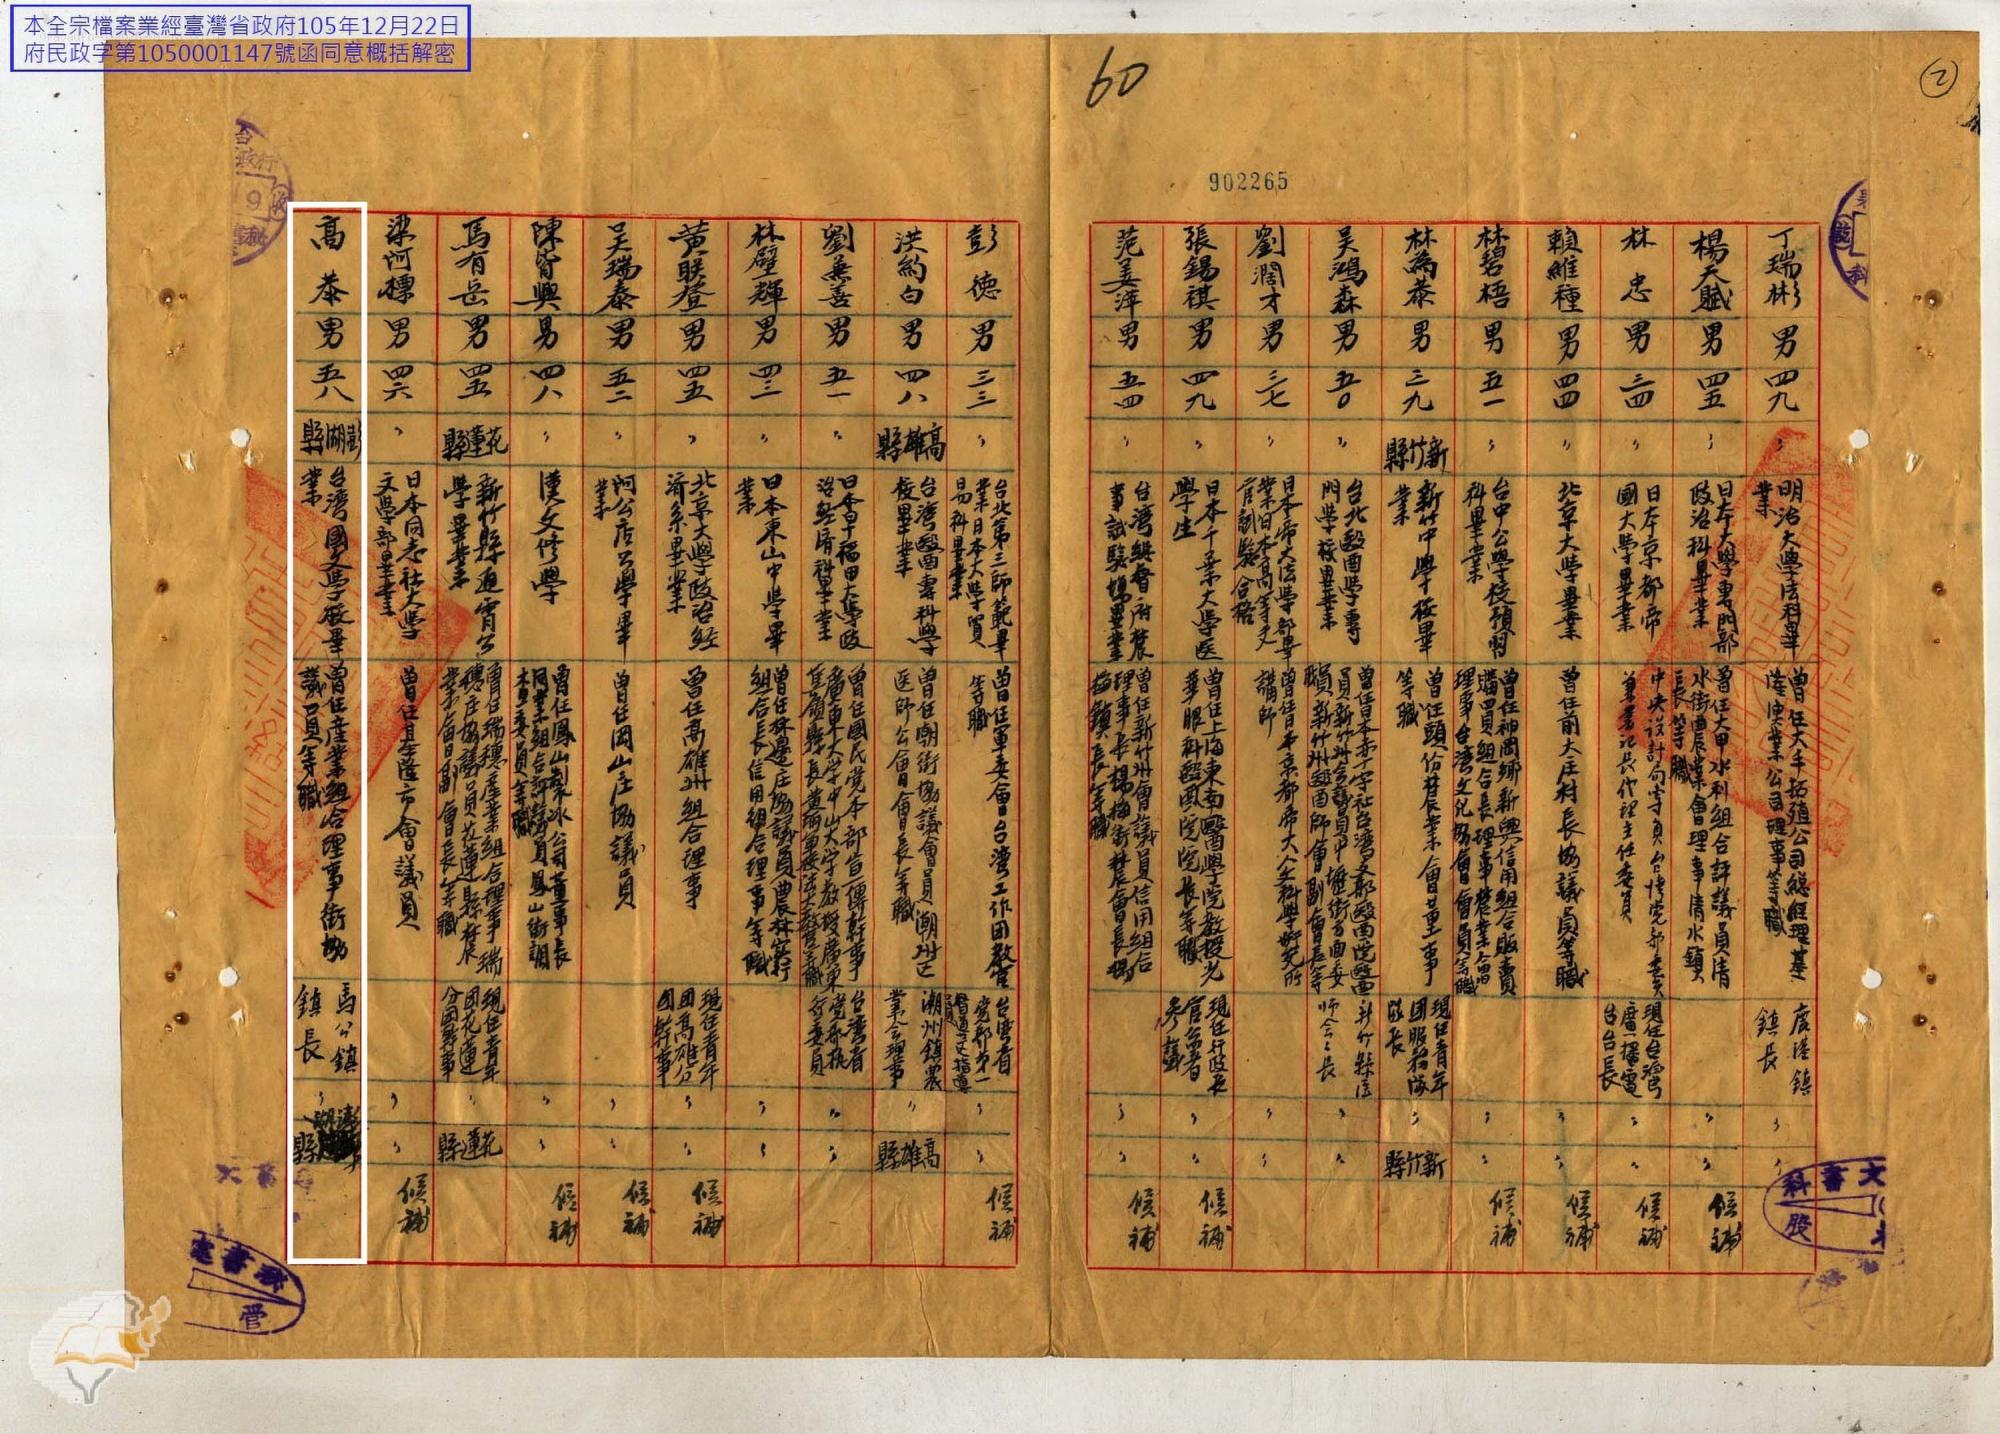 本全宗檔案業經臺灣省政府105年12月22日
府民政字第1050001147號函同意概括解密
60
2
902265
丁瑞彬 男 四九 〃 明治大學法科畢業 曾任大丰拓殖公司總經理基隆漢業公司理事等職 鹿港鎮鎮長 〃 〃
楊天賦 男 四五 〃 日本大學專門部政治科畢業 曾任大甲水利組合評議員清水街農業會理事清水鎮長等職 〃 〃 候補
林忠 男 三四 〃 日本京都帝國大學畢業 中央設計局專員台灣党部委員兼書記長代理主任委員 現任台灣廣播電台台長 〃 〃 候補
賴維種 男 四四 〃 北京大學畢業 曾任前大庄村長協議員等職 〃 〃 候補
林碧梧 男 五一 〃 台中公學校預習科畢業 曾任神岡鄉新興信用組合販賣購買組合長理事農業會理事台灣文化協會會員等職 〃 〃 候補
林為恭 男 三九 新竹縣 新竹中學校畢業 曾任頭份農業會董事等職 現任青年團服務隊隊長 〃 新竹縣
吴鴻森 男 五〇 〃 台北醫學專門學校畢業 曾任日本赤十字社台湾支部醫院醫員新竹州會議員中壢街方面委員新竹州醫師會副會長等職 新竹縣医师会会長 〃 〃
劉濶才 男 三七 〃 日本帝大法學部畢業日本高等文官試驗合格 曾任日本京都帝大人文科學研究所講師 〃 〃
張錫祺 男 四九 〃 日本千葉大學医學生 曾任上海東南醫學院教授光華眼科醫院院長等職 現任行政長官公署參議 〃 〃 候補
范姜萍 男 五四 〃 台湾總督府農事試驗場畢業 曾任新竹州會議員信用組合理事長楊梅街農會長楊梅鎮長等職 〃 〃 候補
彭德 男 三三 〃 台北第三師範畢業日本大學貿易科畢業 曾任軍委會台湾工作团教官等職 台湾省党部第一督導区指導員 〃 〃 候補
洪約白 男 四八 高雄縣 台湾醫專科學校畢業 曾任潮街協議會員潮州区医師公會會長等職 潮州鎮農業会理事 〃 高雄縣
劉兼善 男 五一 〃 日本早稲田大學政治經濟科畢業 曾任國民党本部宣傳幹事廣東大学中山大学教授廣東蕉嶺縣長 台湾省党部执行委員 〃 〃
林壁輝 男 四三 〃 日本東山中學畢業 曾任林邊庄協議員農林實行組合長信用組合理事等職 〃 〃
黄联登 男 四五 〃 北京大學政治經濟系畢業 曾任高雄州組合理事 現任青年团高雄分团幹事 〃 〃 候補
吴瑞泰 男 五二 〃 阿公店公學畢業 曾任岡山庄協議員 〃 〃 候補
陳皆興 男 四八 〃 漢文修學 曾任鳳山製冰公司董事長同業組合評議員鳳山街調査委員等職 〃 〃 候補
馬有岳 男 四五 花蓮縣 新竹縣通霄公學畢業 曾任瑞穗產業組合理事瑞穗庄協議員花蓮縣農業會副會長等職 現任青年团花蓮分团幹事 〃 花蓮縣
梁阿標 男 四六 〃 日本同志社大學文學部畢業 曾任基隆市會議員 〃 〃 候補
高恭 男 五八 彭湖縣 台湾國文學校畢業 曾任産業組合理事街協議員等職 馬公鎮鎮長 〃 澎湖縣
文書科
股
管